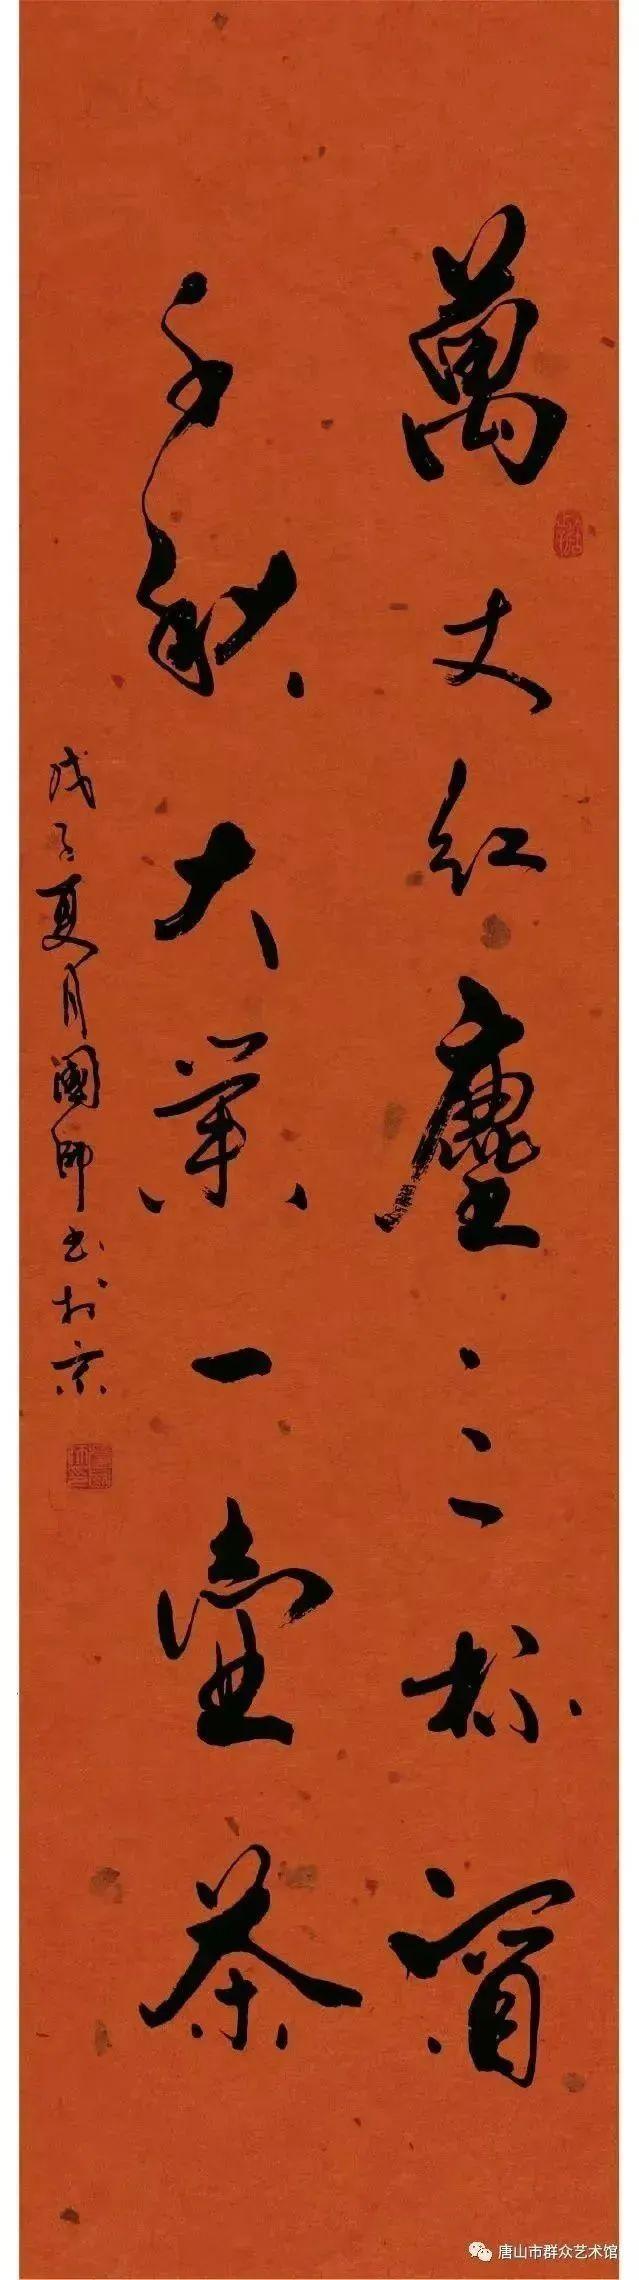 萬丈紅塵三杯酒
千秋大業一壺茶
戊子夏月國師书於京
唐山市群众艺术馆